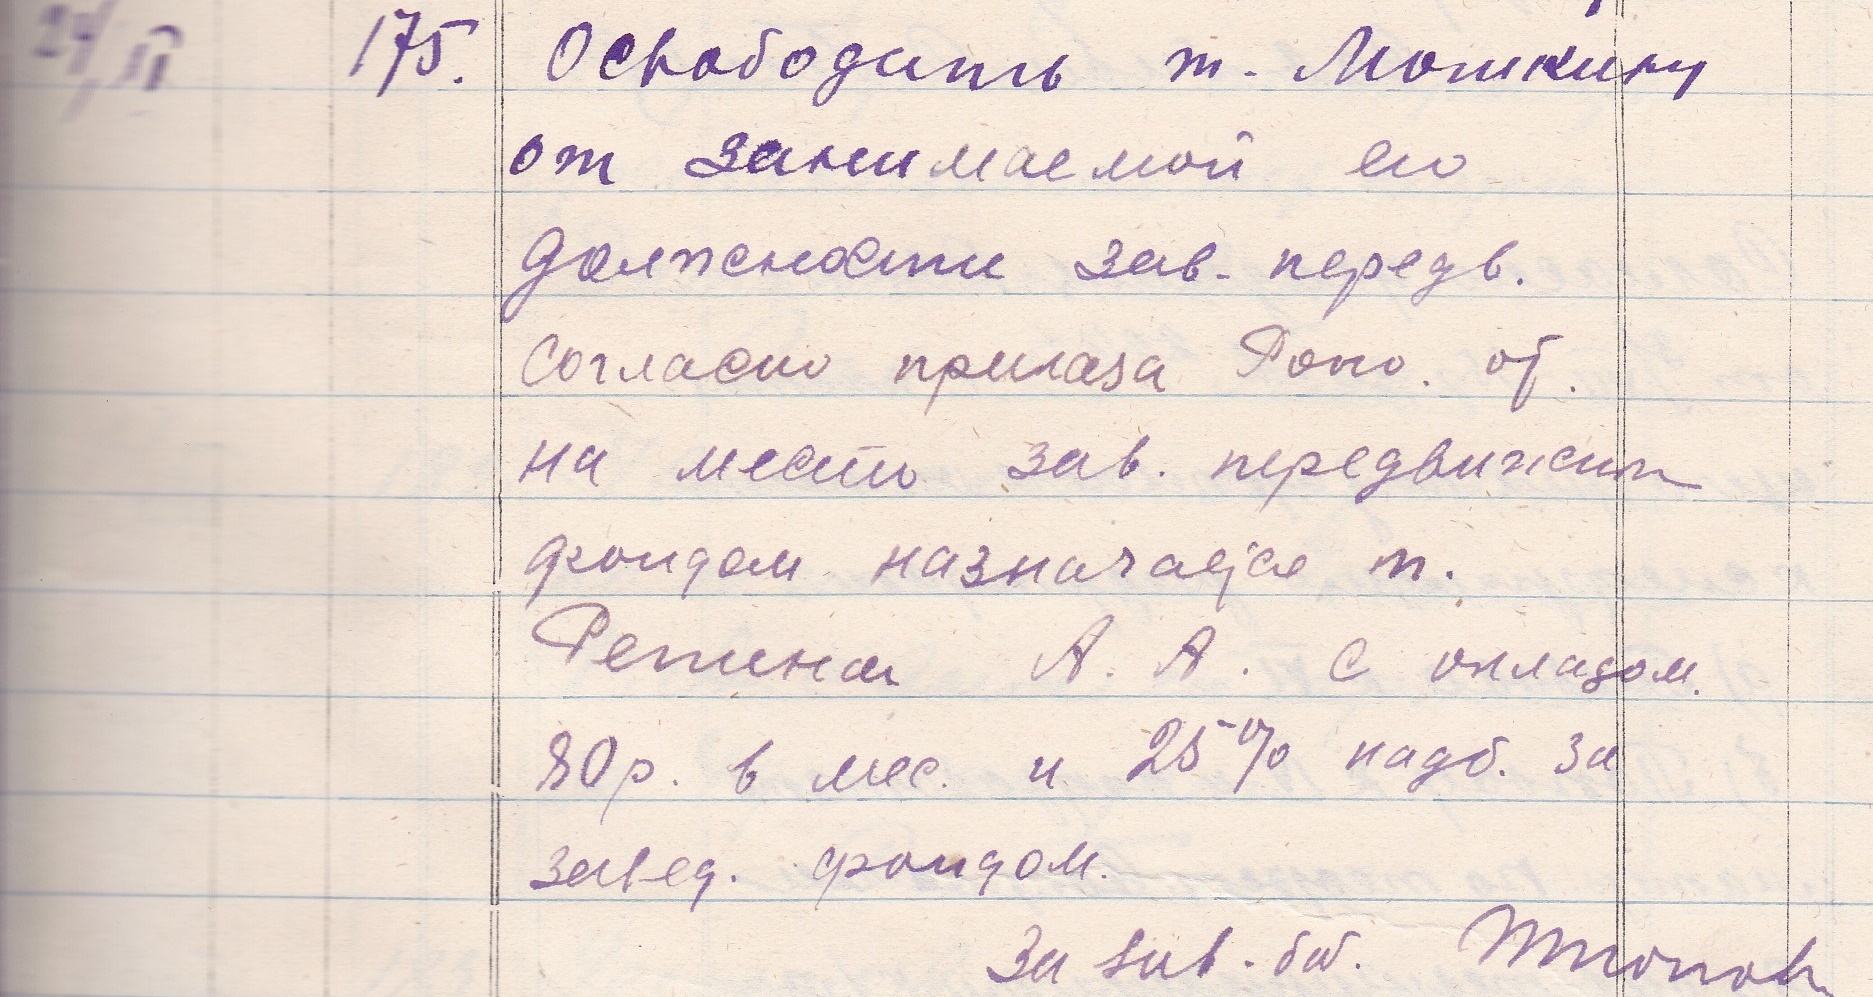 24/II 175. Освободить т. Мошкину
от занимаемой ею
должности зав. передв.
Согласно приказа Роно. от.
на место зав. передвижн
фондом назначается т.
Репина А. А. с окладом.
80р. в мес. и 25% надб. за
завед. фондом.
За зав. биб.